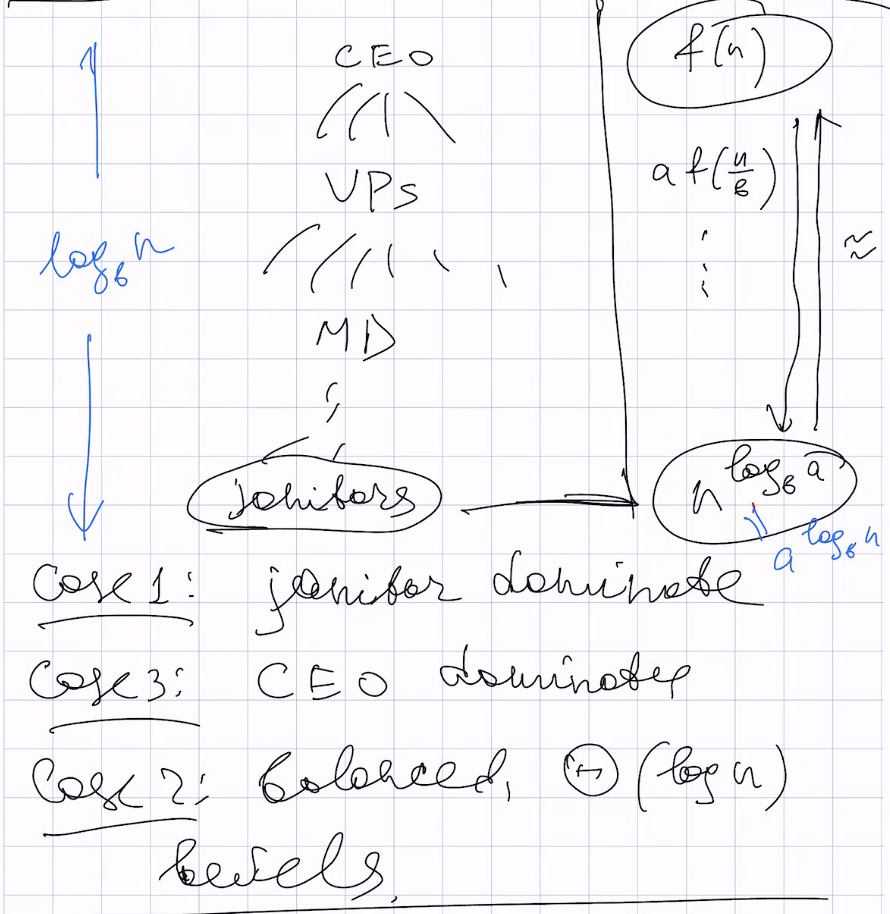 CEO f(n)
VPs a f(n/b)
log_b n ≈
MD
janitors n^{log_b a}
a^{log_b n}
Case 1: janitor dominate
Case 3: CEO dominates
Case 2: balanced, Θ(log n)
levels.